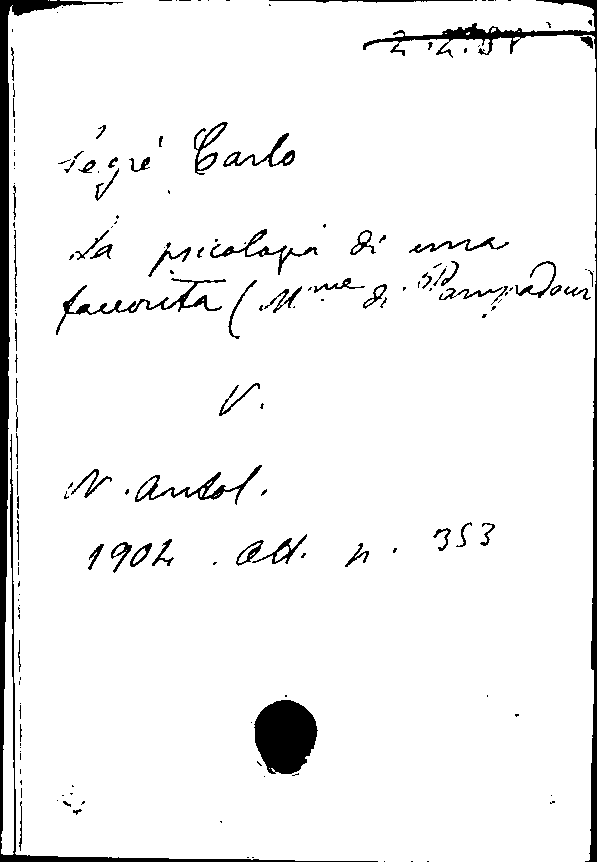 Segré Carlo
La psicologia di una
favorita (Mme di Pompadour
V.
N. Antol.
1902. Ott. p. 353